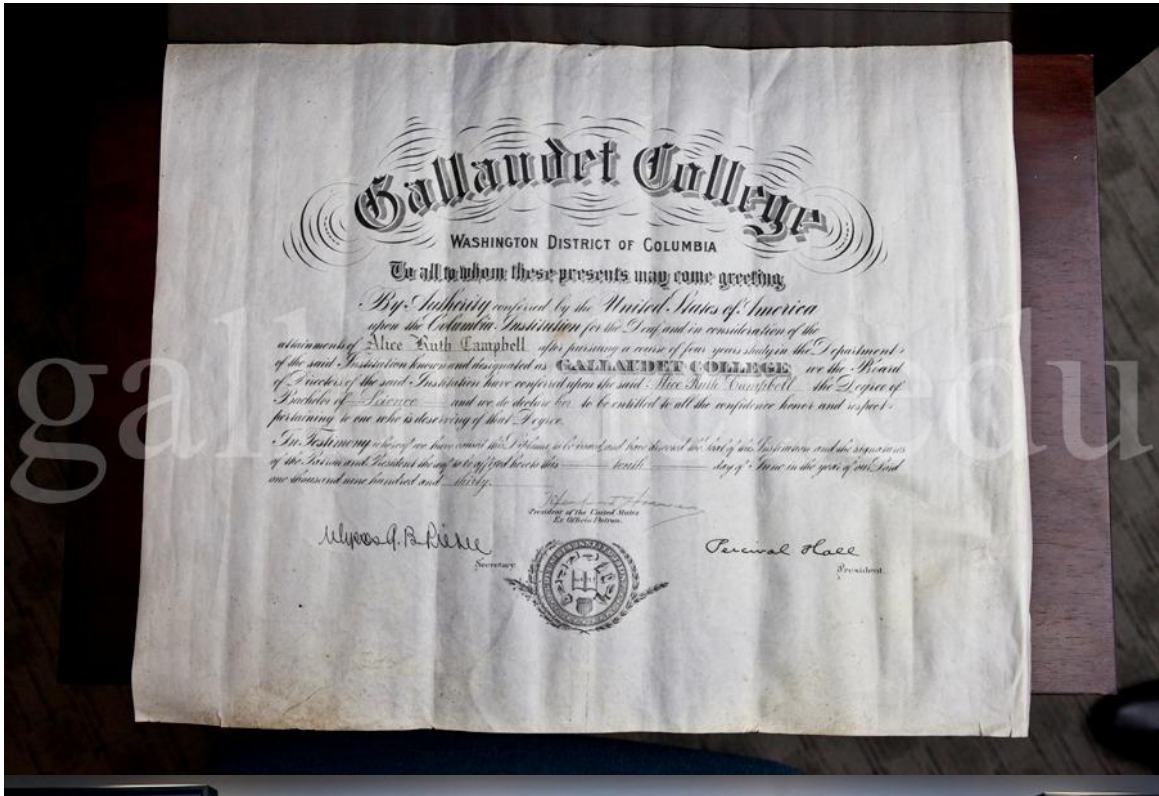 Gallaudet College
WASHINGTON DISTRICT OF COLUMBIA
To all to whom these presents may come greeting
By Authority conferred by the United States of America
upon the Columbia Institution for the Deaf and in consideration of the
attainments of Alice Ruth Campbell after pursuing a course of four years study in the Department
of the said Institution known and designated as GALLAUDET COLLEGE we the Board
of Directors of the said Institution have conferred upon the said Alice Ruth Campbell the Degree of
Bachelor of Science and we do declare her to be entitled to all the confidence honor and respect
pertaining to one who is deserving of that Degree.
In Testimony whereof we have caused this Diploma to be issued and have directed the Seal of this Institution and the signatures
of the Patron and President thereof to be affixed hereto this tenth day of June in the year of our Lord
one thousand nine hundred and thirty.
President of the United States
Ex Officio Patron.
Secretary
Percival Hall
President.